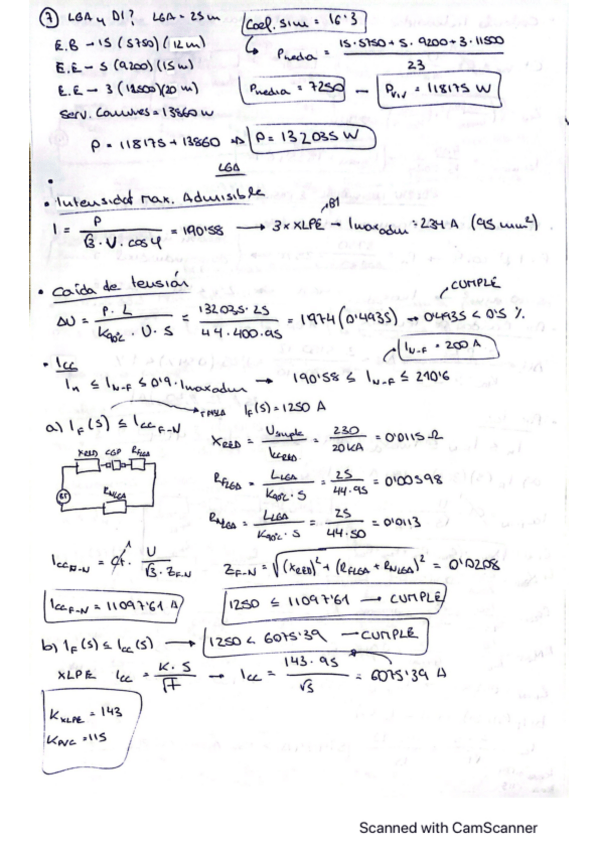 7 LGA y DI? LGA = 25 m
Coef. sim = 16'3
E.B → 15 (5750) (12 m)
E.E → 5 (9200) (15 m)
E.E → 3 (11500) (20 m)
Serv. Comunes = 13860 W
Pmedia = (15·5750 + 5·9200 + 3·11500) / 23
Pmedia = 7250 — Pviv = 118175 W
P = 118175 + 13860 ⇒ P = 132035 W
LGA
• Intensidad max. Admisible
I = P / (√3 · V · cos φ) = 190'58 → 3 x XLPE → Imaxadm = 234 A (95 mm²)
B1
• Caída de tensión
ΔU = (P · L) / (K90ºC · U · S) = (132035 · 25) / (44 · 400 · 95) = 1'974 (0'4935) → 0'4935 < 0'5 %
CUMPLE
• Icc
IN-F = 200 A
In ≤ IN-F ≤ 0'9 · Imaxadm → 190'58 ≤ IN-F ≤ 210'6
a) IF(5) ≤ IccF-N
IF(5) = 1250 A
XRED CGP RFLGA
RNLGA
XRED = Usimple / IccRED = 230 / 20 kA = 0'0115 Ω
RFLGA = LLGA / (K90ºC · S) = 25 / (44·95) = 0'00598
RNLGA = LLGA / (K90ºC · S) = 25 / (44·50) = 0'0113
IccF-N = Ct · U / (√3 · ZF-N)
ZF-N = √((XRED)² + (RFLGA + RNLGA)²) = 0'0208
IccF-N = 11097'61 A
1250 ≤ 11097'61 → CUMPLE
b) IF(5) ≤ Icc(5) → 1250 < 6075'39 — CUMPLE
XLPE Icc = (K · S) / √T → Icc = (143 · 95) / √5 = 6075'39 A
KXLPE = 143
KPVC = 115
Scanned with CamScanner